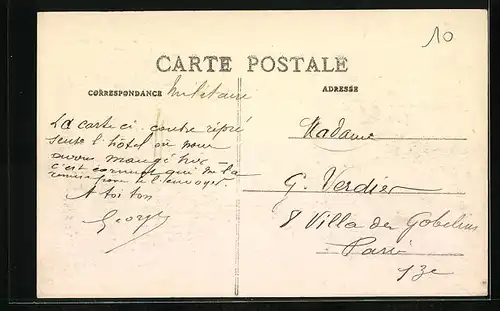 10
CARTE POSTALE
CORRESPONDANCE Militaire
ADRESSE
La carte ci contre répré
sente l'hôtel où nous
avons mangé hier
c'est qui m'la
pour te l'envoyer.
A toi ton
Georges
Madame
G. Verdier
8 Villa des Gobelins
Paris
13e